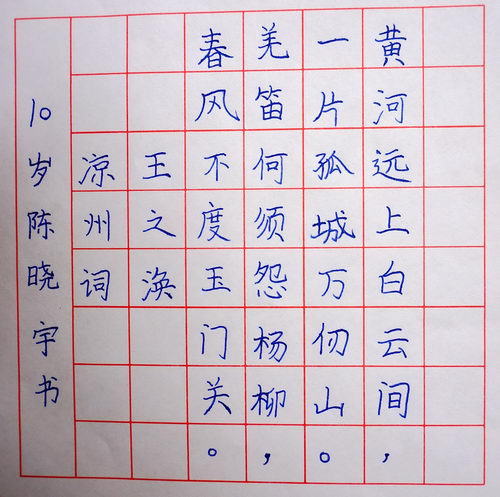 黄河远上白云间，
一片孤城万仞山。
羌笛何须怨杨柳，
春风不度玉门关。
王之涣
凉州词
10岁陈晓宇书